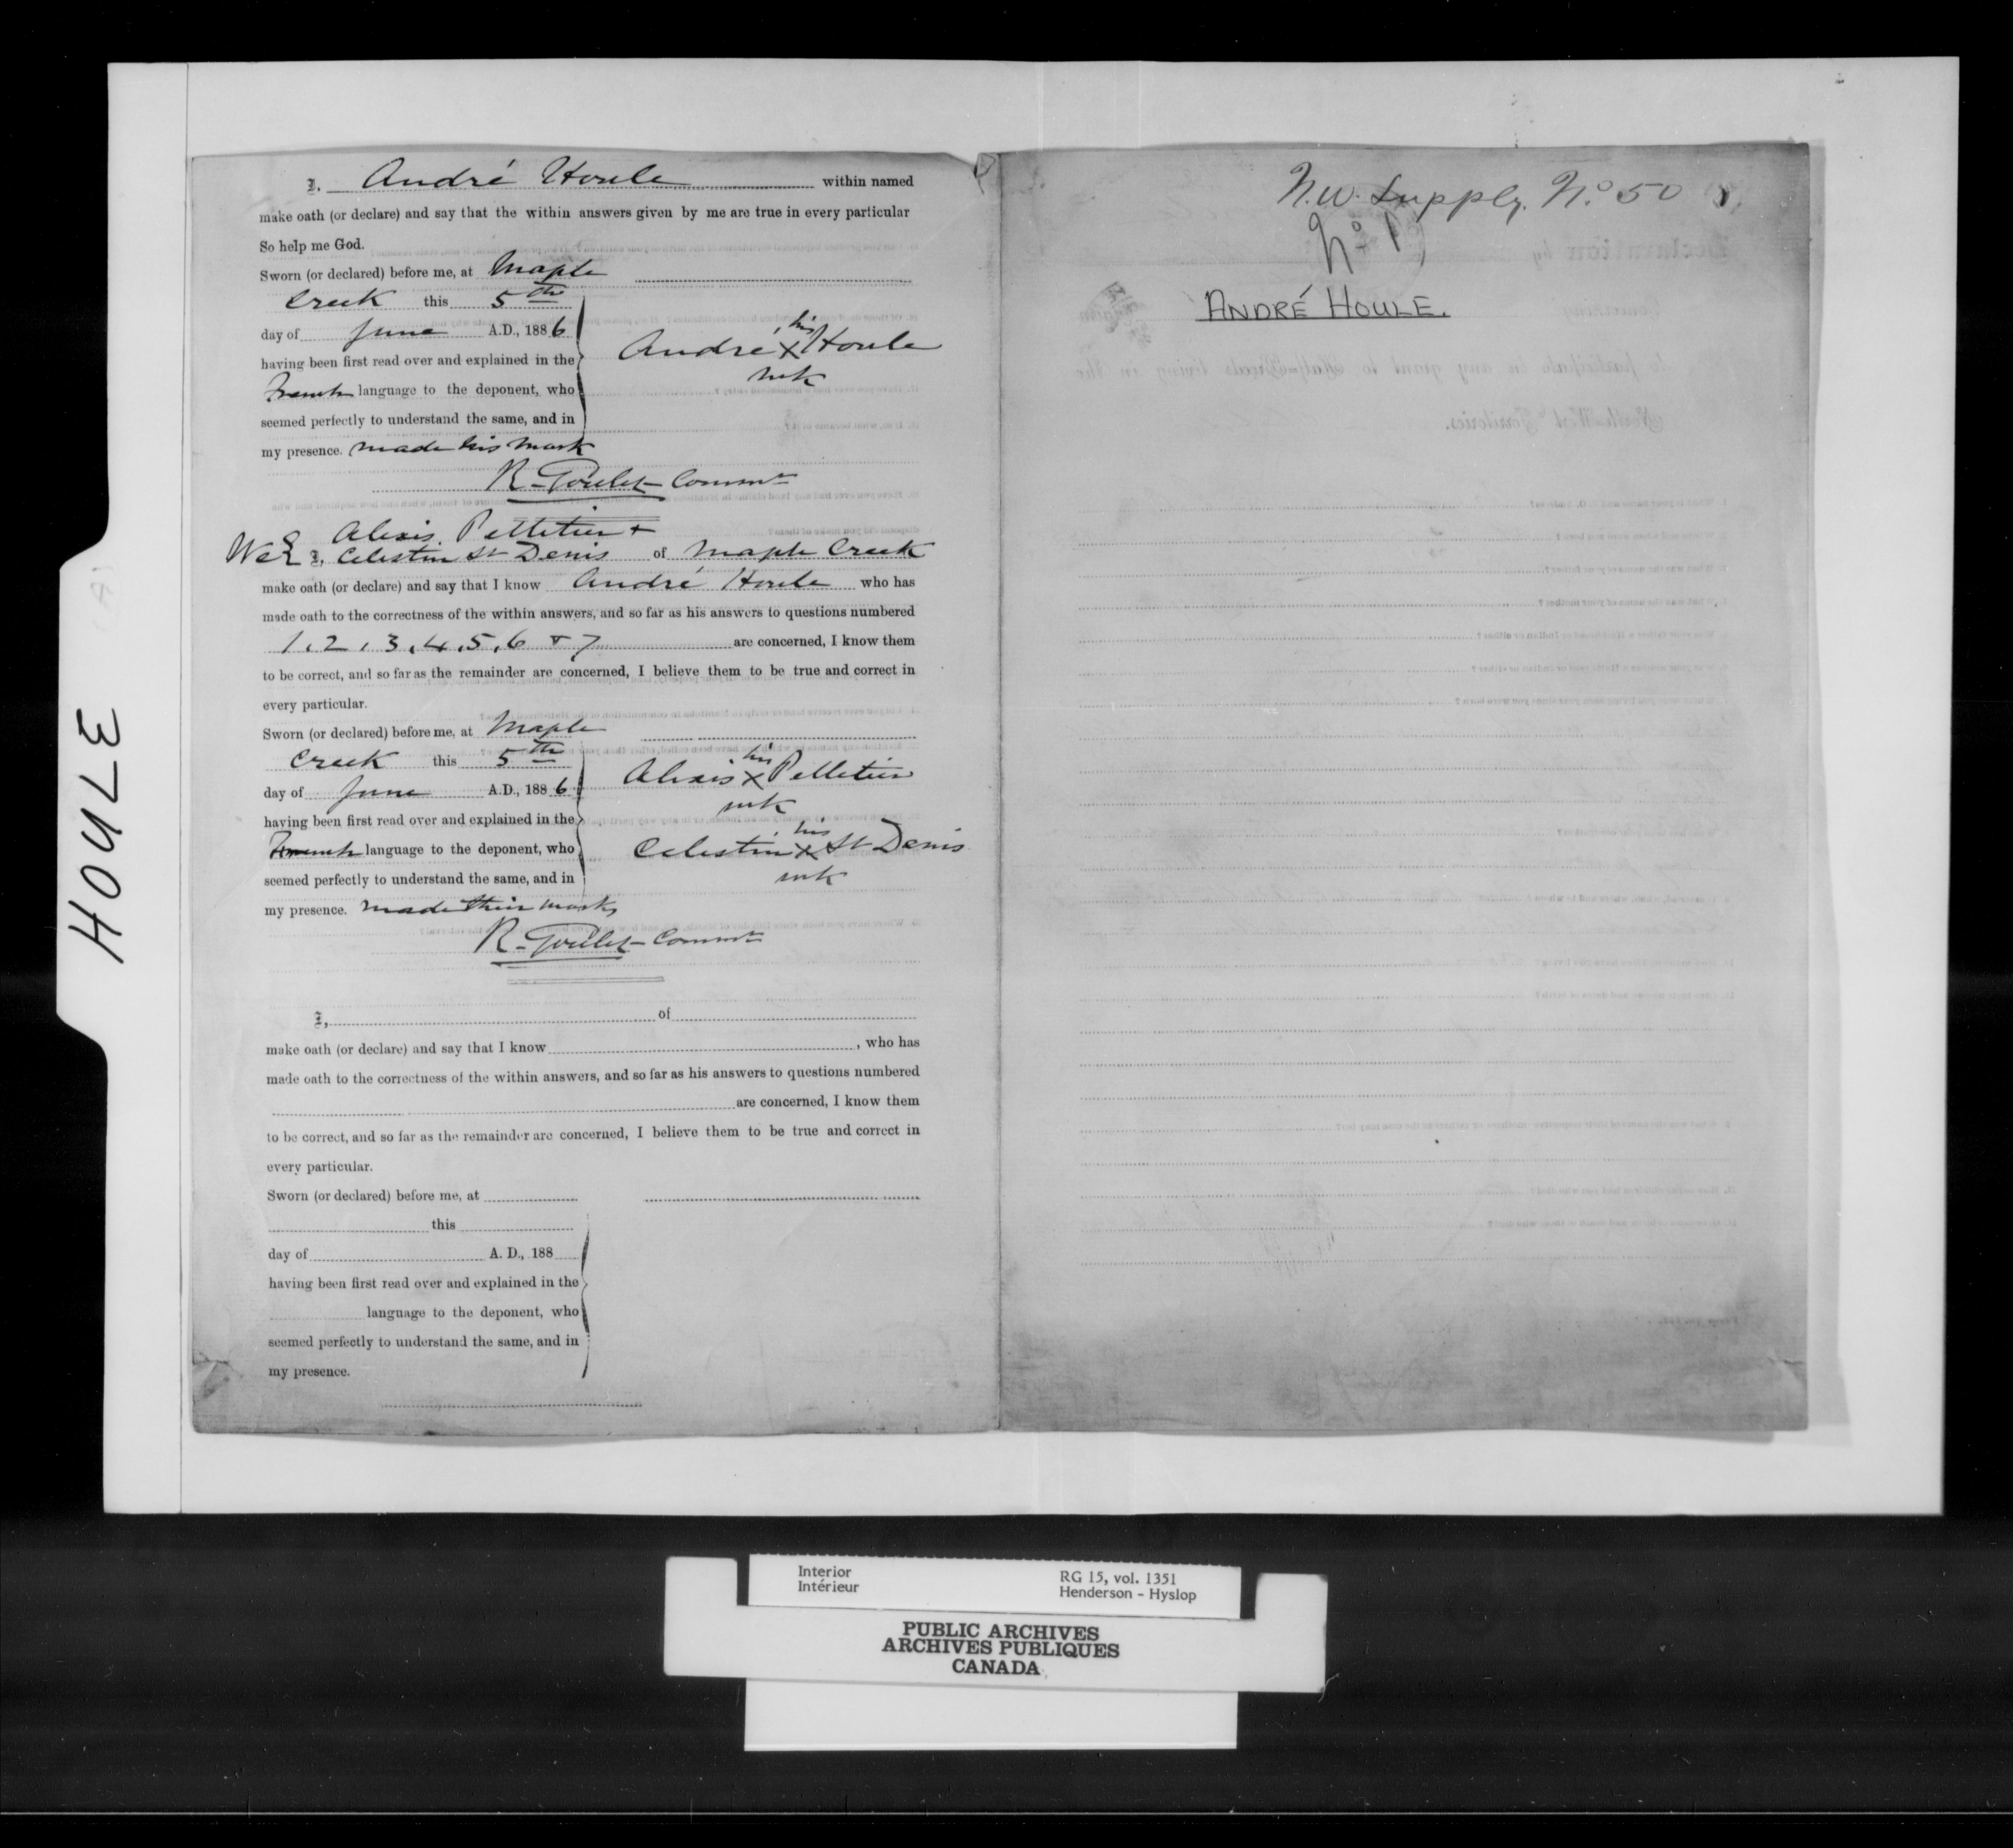 HOULE
I, André Houle within named
make oath (or declare) and say that the within answers given by me are true in every particular
So help me God.
Sworn (or declared) before me, at Maple
Creek this 5th
day of June A.D., 1886
having been first read over and explained in the
French language to the deponent, who
seemed perfectly to understand the same, and in
my presence. made his mark
André his X mk Houle
R. Goulet Commr
We Alexis Pelletier +
I, Celestin St Denis of Maple Creek
make oath (or declare) and say that I know André Houle who has
made oath to the correctness of the within answers, and so far as his answers to questions numbered
1, 2, 3, 4, 5, 6 + 7 are concerned, I know them
to be correct, and so far as the remainder are concerned, I believe them to be true and correct in
every particular.
Sworn (or declared) before me, at Maple
Creek this 5th
day of June A.D., 1886
having been first read over and explained in the
French language to the deponent, who
seemed perfectly to understand the same, and in
my presence. made their marks
Alexis his X mk Pelletier
Celestin his X mk St Denis
R. Goulet Commr
I, of
make oath (or declare) and say that I know , who has
made oath to the correctness of the within answers, and so far as his answers to questions numbered
are concerned, I know them
to be correct, and so far as the remainder are concerned, I believe them to be true and correct in
every particular.
Sworn (or declared) before me, at
this
day of A. D., 188
having been first read over and explained in the
language to the deponent, who
seemed perfectly to understand the same, and in
my presence.
N.W. Supply. No. 50
No 1
ANDRÉ HOULE.
Interior
Intérieur
RG 15, vol. 1351
Henderson - Hyslop
PUBLIC ARCHIVES
ARCHIVES PUBLIQUES
CANADA